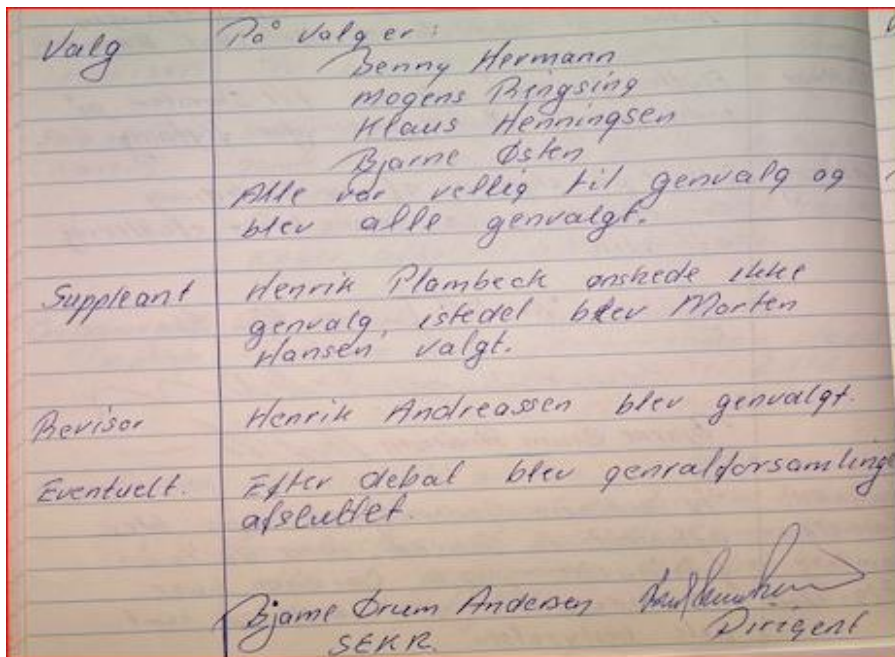 Valg
På valg er:
Benny Hermann
Mogens Ringsing
Klaus Henningsen
Bjarne Østen
Alle var vellig til genvalg og
blev alle genvalgt.
Suppleant
Henrik Plambeck ønskede ikke
genvalg, istedel blev Morten
Hansen valgt.
Revisor
Henrik Andreassen blev genvalgt.
Eventuelt.
Efter debat blev genralforsamling
afsluttet.
Bjarne Ørum Andersen
SEKR.
Dirigent